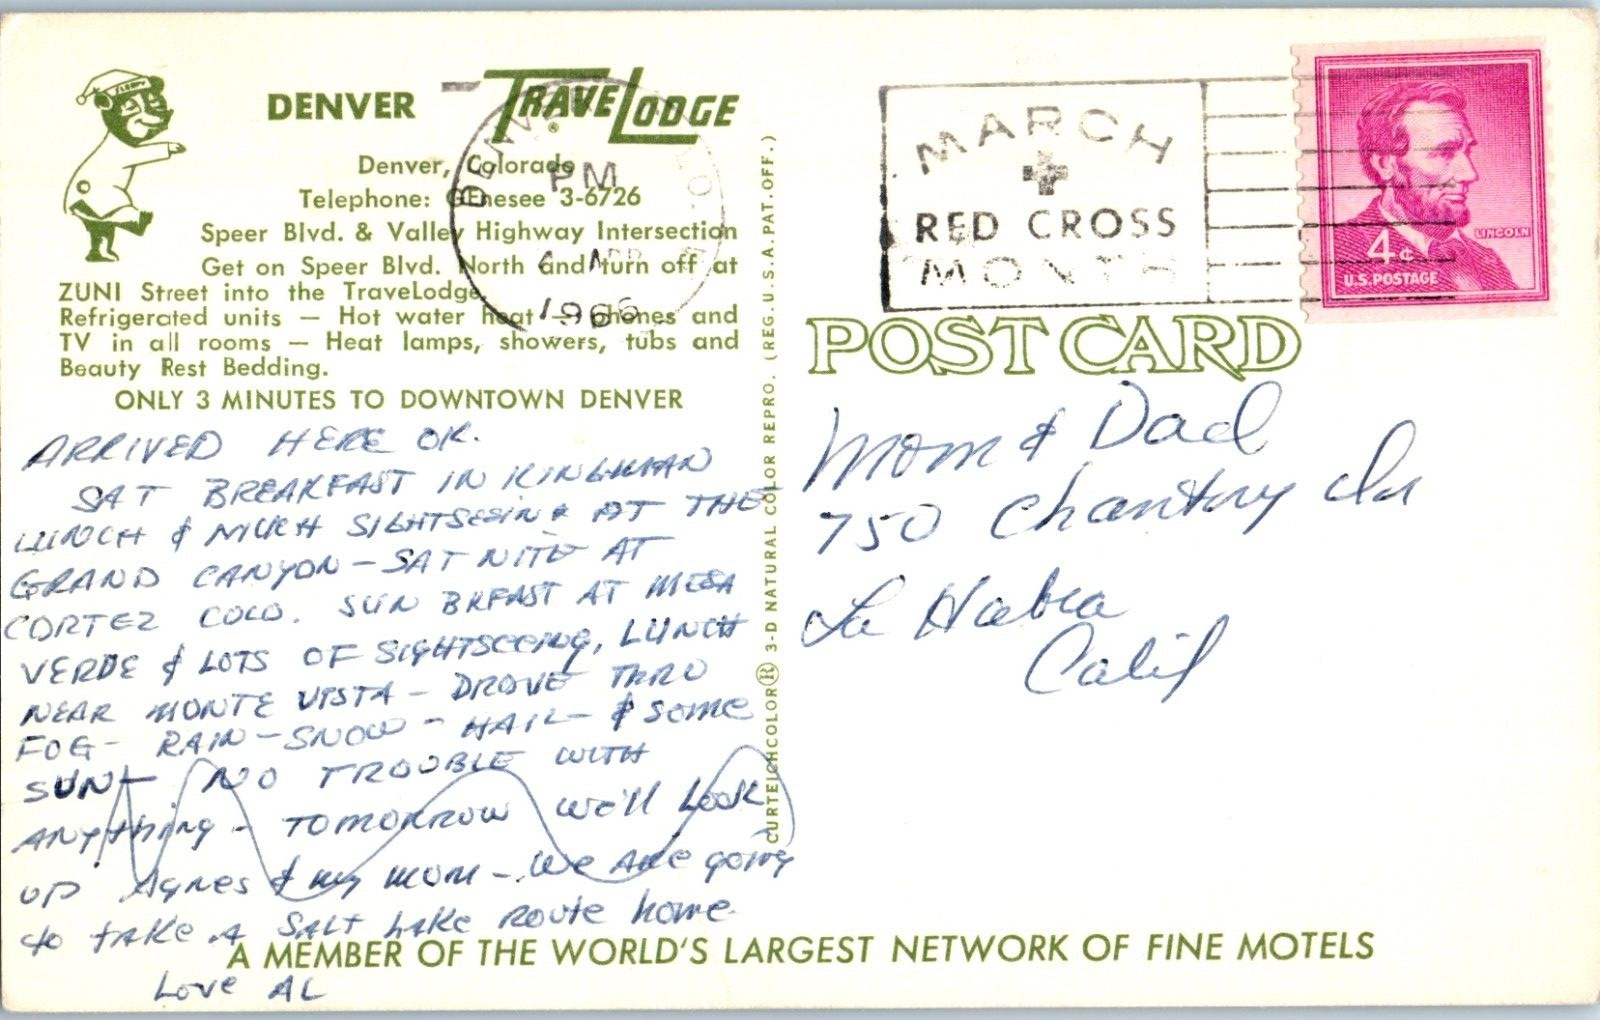 SLEEPY
DENVER TRAVELODGE
Denver, Colorado
Telephone: GEnesee 3-6726
Speer Blvd. & Valley Highway Intersection
Get on Speer Blvd. North and turn off at
ZUNI Street into the TraveLodge.
Refrigerated units — Hot water heat — phones and
TV in all rooms — Heat lamps, showers, tubs and
Beauty Rest Bedding.
ONLY 3 MINUTES TO DOWNTOWN DENVER
PM
APR
1966
ARRIVED HERE OK.
SAT BREAKFAST IN KINGMAN
LUNCH & MUCH SIGHTSEEING AT THE
GRAND CANYON - SAT NITE AT
CORTEZ COLO. SUN BKFAST AT MESA
VERDE & LOTS OF SIGHTSEEING, LUNCH
NEAR MONTE VISTA - DROVE THRU
FOG - RAIN - SNOW - HAIL - & SOME
SUN - NO TROUBLE WITH
ANYthing - TOMORROW we'll Look
UP Agnes & my mom - We Are going
to take A SALT LAKE Route home.
Love AL
CURTEICHCOLOR® 3-D NATURAL COLOR REPRO. (REG. U.S.A. PAT. OFF.)
MARCH
RED CROSS
MONTH
LINCOLN
4¢
U.S. POSTAGE
POST CARD
Mom & Dad
750 Chantry Dr
La Habra
Calif
A MEMBER OF THE WORLD'S LARGEST NETWORK OF FINE MOTELS